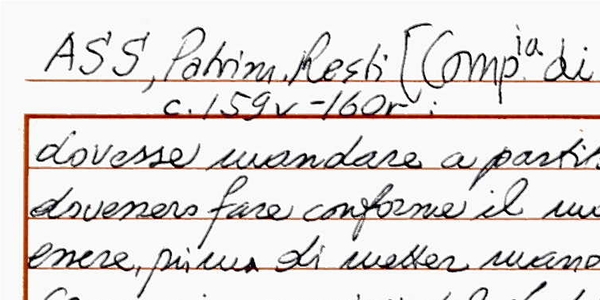 ASS, Patrim. Resti [Comp.ia di
c. 159v-160r:
dovesse mandare a partit
dovessero fare conforme il mo
enere, prima di metter mano